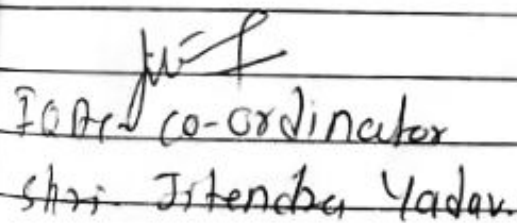 IQAC co-ordinator
Shri. Jitendra Yadav